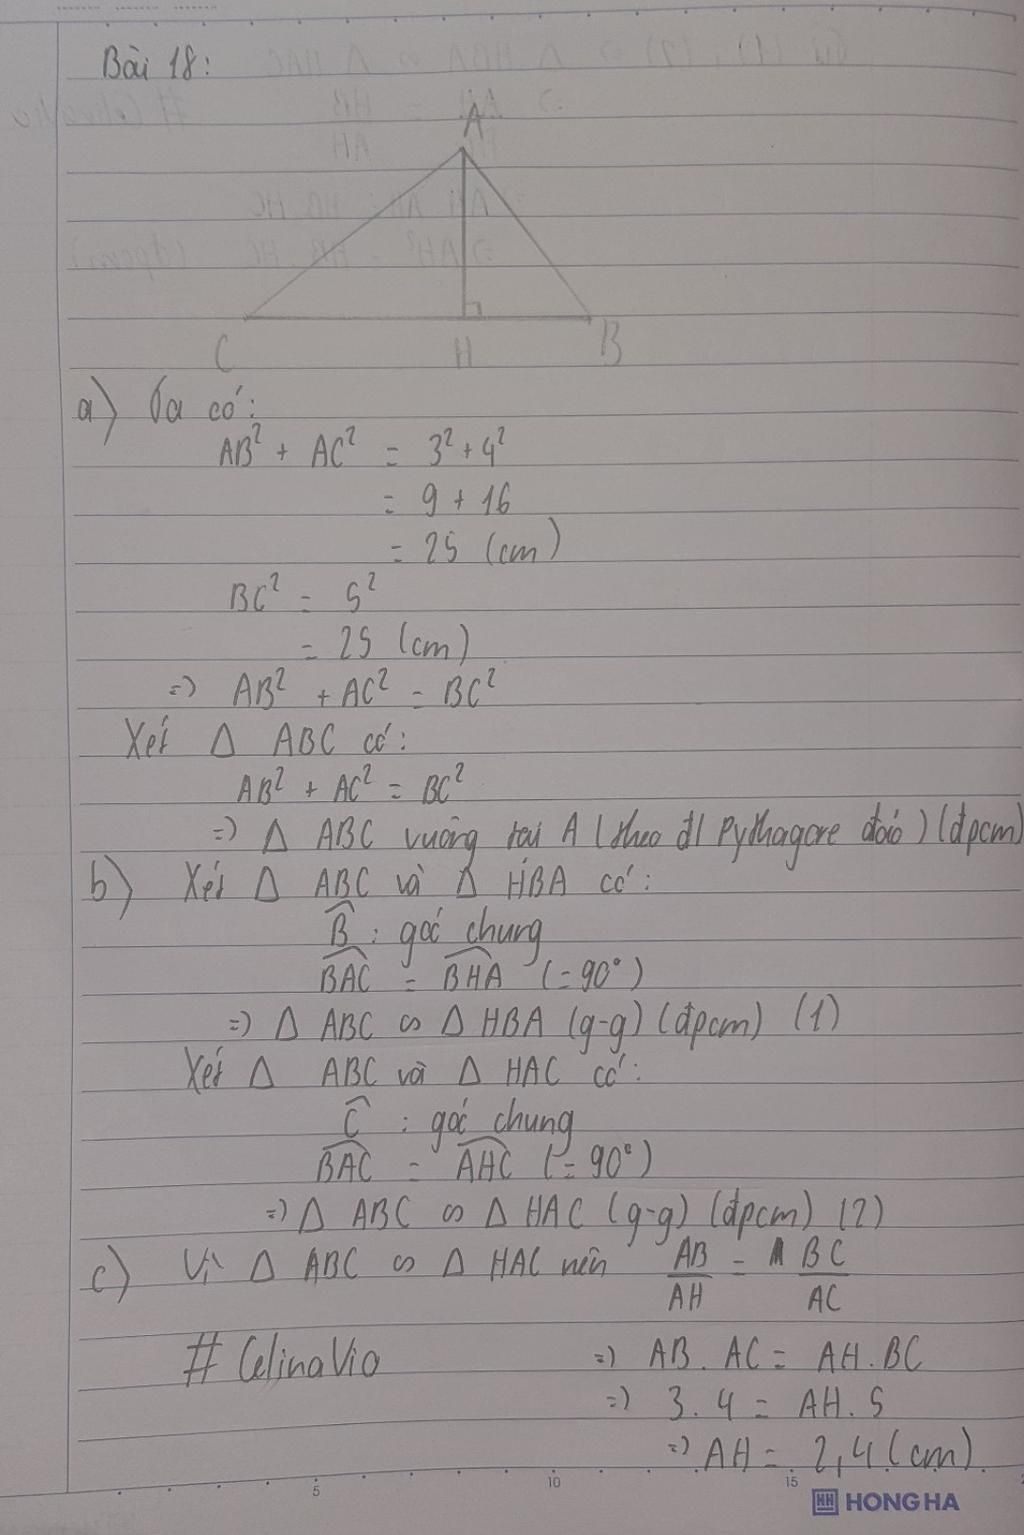 Bài 18:
A
C H B
a) Ta có:
AB² + AC² = 3² + 4²
= 9 + 16
= 25 (cm)
BC² = 5²
= 25 (cm)
=> AB² + AC² = BC²
Xét Δ ABC có:
AB² + AC² = BC²
=> Δ ABC vuông tại A (theo đl Pythagore đảo) (đpcm)
b) Xét Δ ABC và Δ HBA có:
B̂ : góc chung
B͡AC = B͡HA (= 90°)
=> Δ ABC ∽ Δ HBA (g-g) (đpcm) (1)
Xét Δ ABC và Δ HAC có:
Ĉ : góc chung
B͡AC = A͡HC (= 90°)
=> Δ ABC ∽ Δ HAC (g-g) (đpcm) (2)
c) Vì Δ ABC ∽ Δ HAC nên AB/AH = BC/AC
# CelinaVio => AB. AC = AH. BC
=> 3. 4 = AH. 5
=> AH = 2,4 (cm)
5 10 15
HH HONG HA